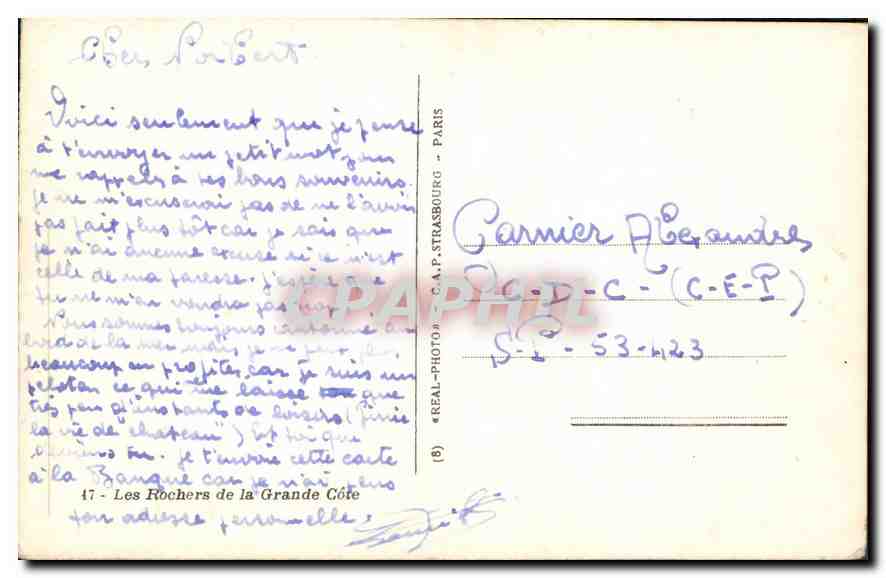 Cher Norbert
Voici seulement que je pense
à t'envoyer un petit mot pour
me rappeler à tes bons souvenirs.
Je ne m'excuserai pas de ne l'avoir
pas fait plus tôt car je sais que
je n'ai aucune excuse si ce n'est
celle de ma paresse. J'espère que
tu ne m'en voudra pas trop
Nous sommes toujours cantonné au
bord de la mer mais je ne peux plus
beaucoup en profiter car je suis un
peloton ce qui me laisse que
très peu d'instants de loisirs (finie
la vie de "chateau") Et toi que
deviens tu. Je t'envoie cette carte
à la Banque car je n'ai pas
17 - Les Rochers de la Grande Côte
ton adresse personnelle.
(8) «REAL-PHOTO» - C.A.P. STRASBOURG - PARIS
CPAPHIL
Garnier Alexandre
C-D-C-(C-E-P)
S-P-53-423